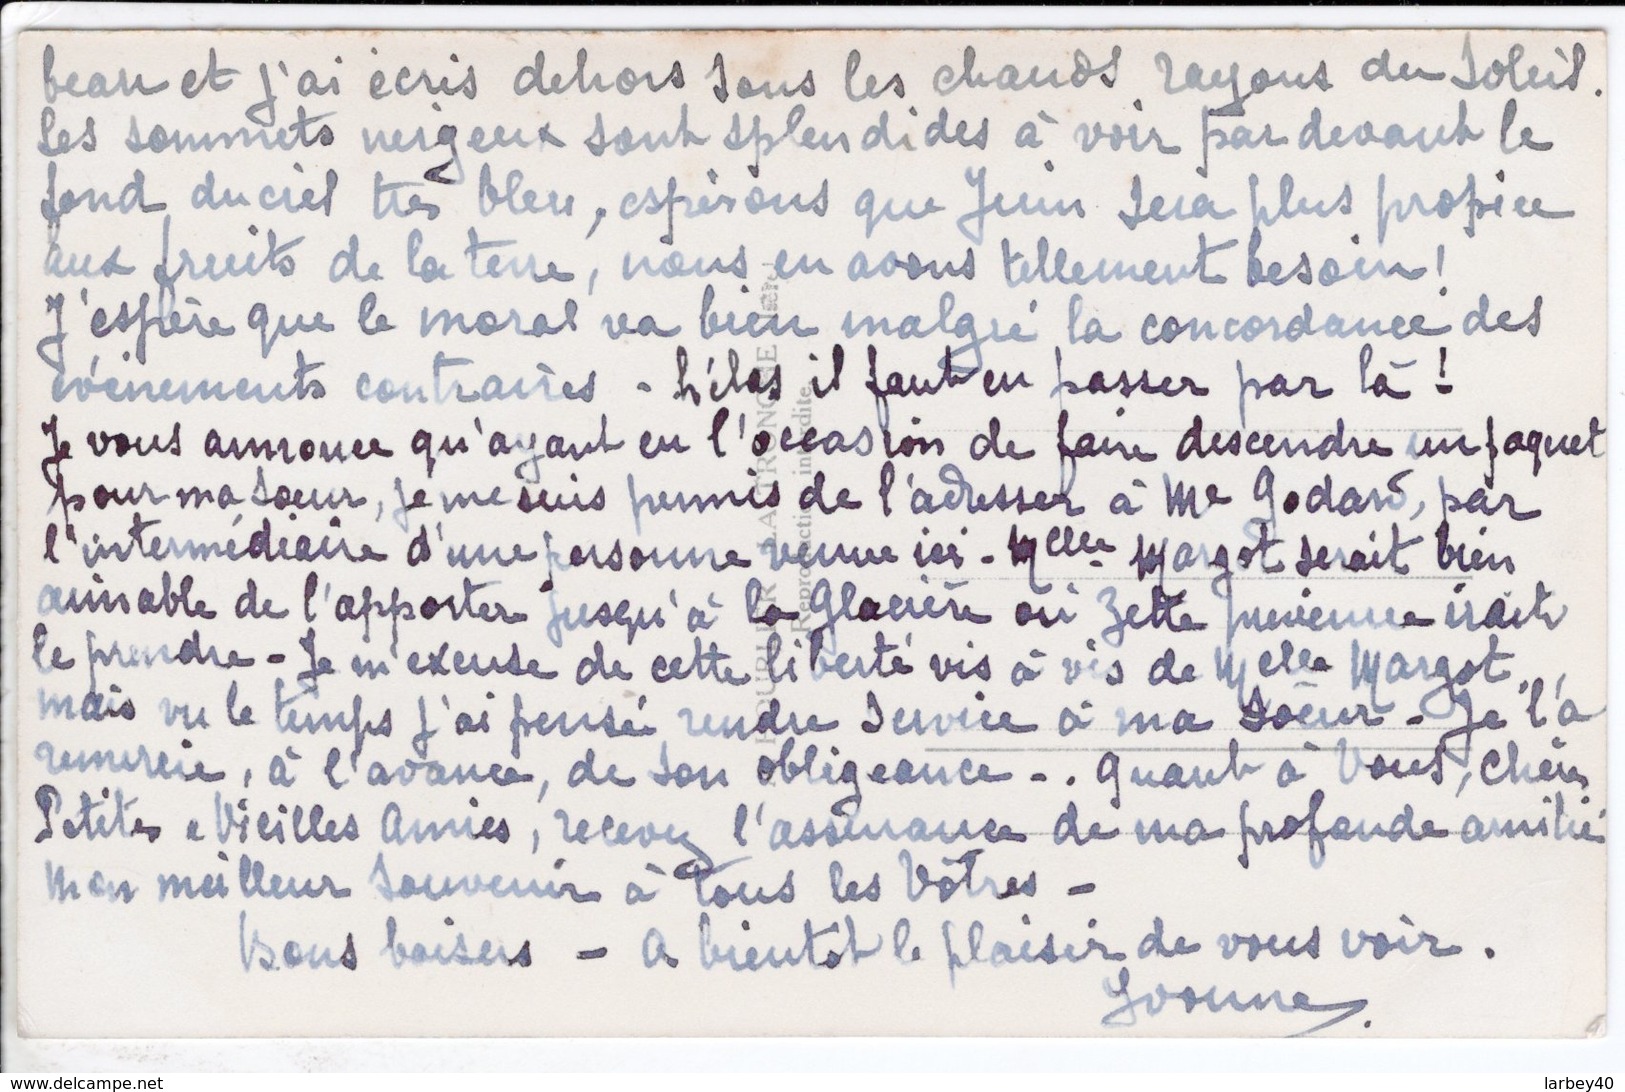 beau et j'ai écris dehors sous les chauds rayons du Soleil.
Les sommets neigeux sont splendides à voir par devant le
fond du ciel très bleu, espérons que Juin sera plus propice
aux fruits de la terre, nous en avons tellement besoin !
J'espère que le moral va bien malgré la concordance des
évènements contraires - hélas il faut en passer par là !
Je vous annonce qu'ayant eu l'occasion de faire descendre un paquet
pour ma soeur, je me suis permis de l'adresser à Me Godard, par
l'intermédiaire d'une personne venue ici - Melle Margot serait bien
aimable de l'apporter jusqu'à la Glacière où Zette prévenue irait
le prendre - Je m'excuse de cette liberté vis à vis de Melle Margot,
mais vu le temps j'ai pensé rendre service à ma Soeur - Je l'a
remercie, à l'avance, de son obligeance -. Quant à Vous, Chères
Petites e Vieilles Amies, recevez l'assurance de ma profonde amitié
Mon meilleur Souvenir à tous les Vôtres -
Bons baisers - A bientôt le plaisir de vous voir.
Yvonne.
LA TRONCHE
Reproduction interdite
larbey40